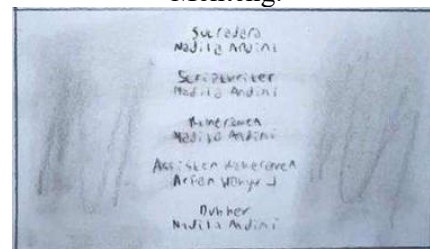 Menteng.
Sutradara
Nadila Andini
Scriptwriter
Nadila Andini
Kameramen
Nadila Andini
Assisten Kameramen
Arfan
Dubber
Nadila Andini